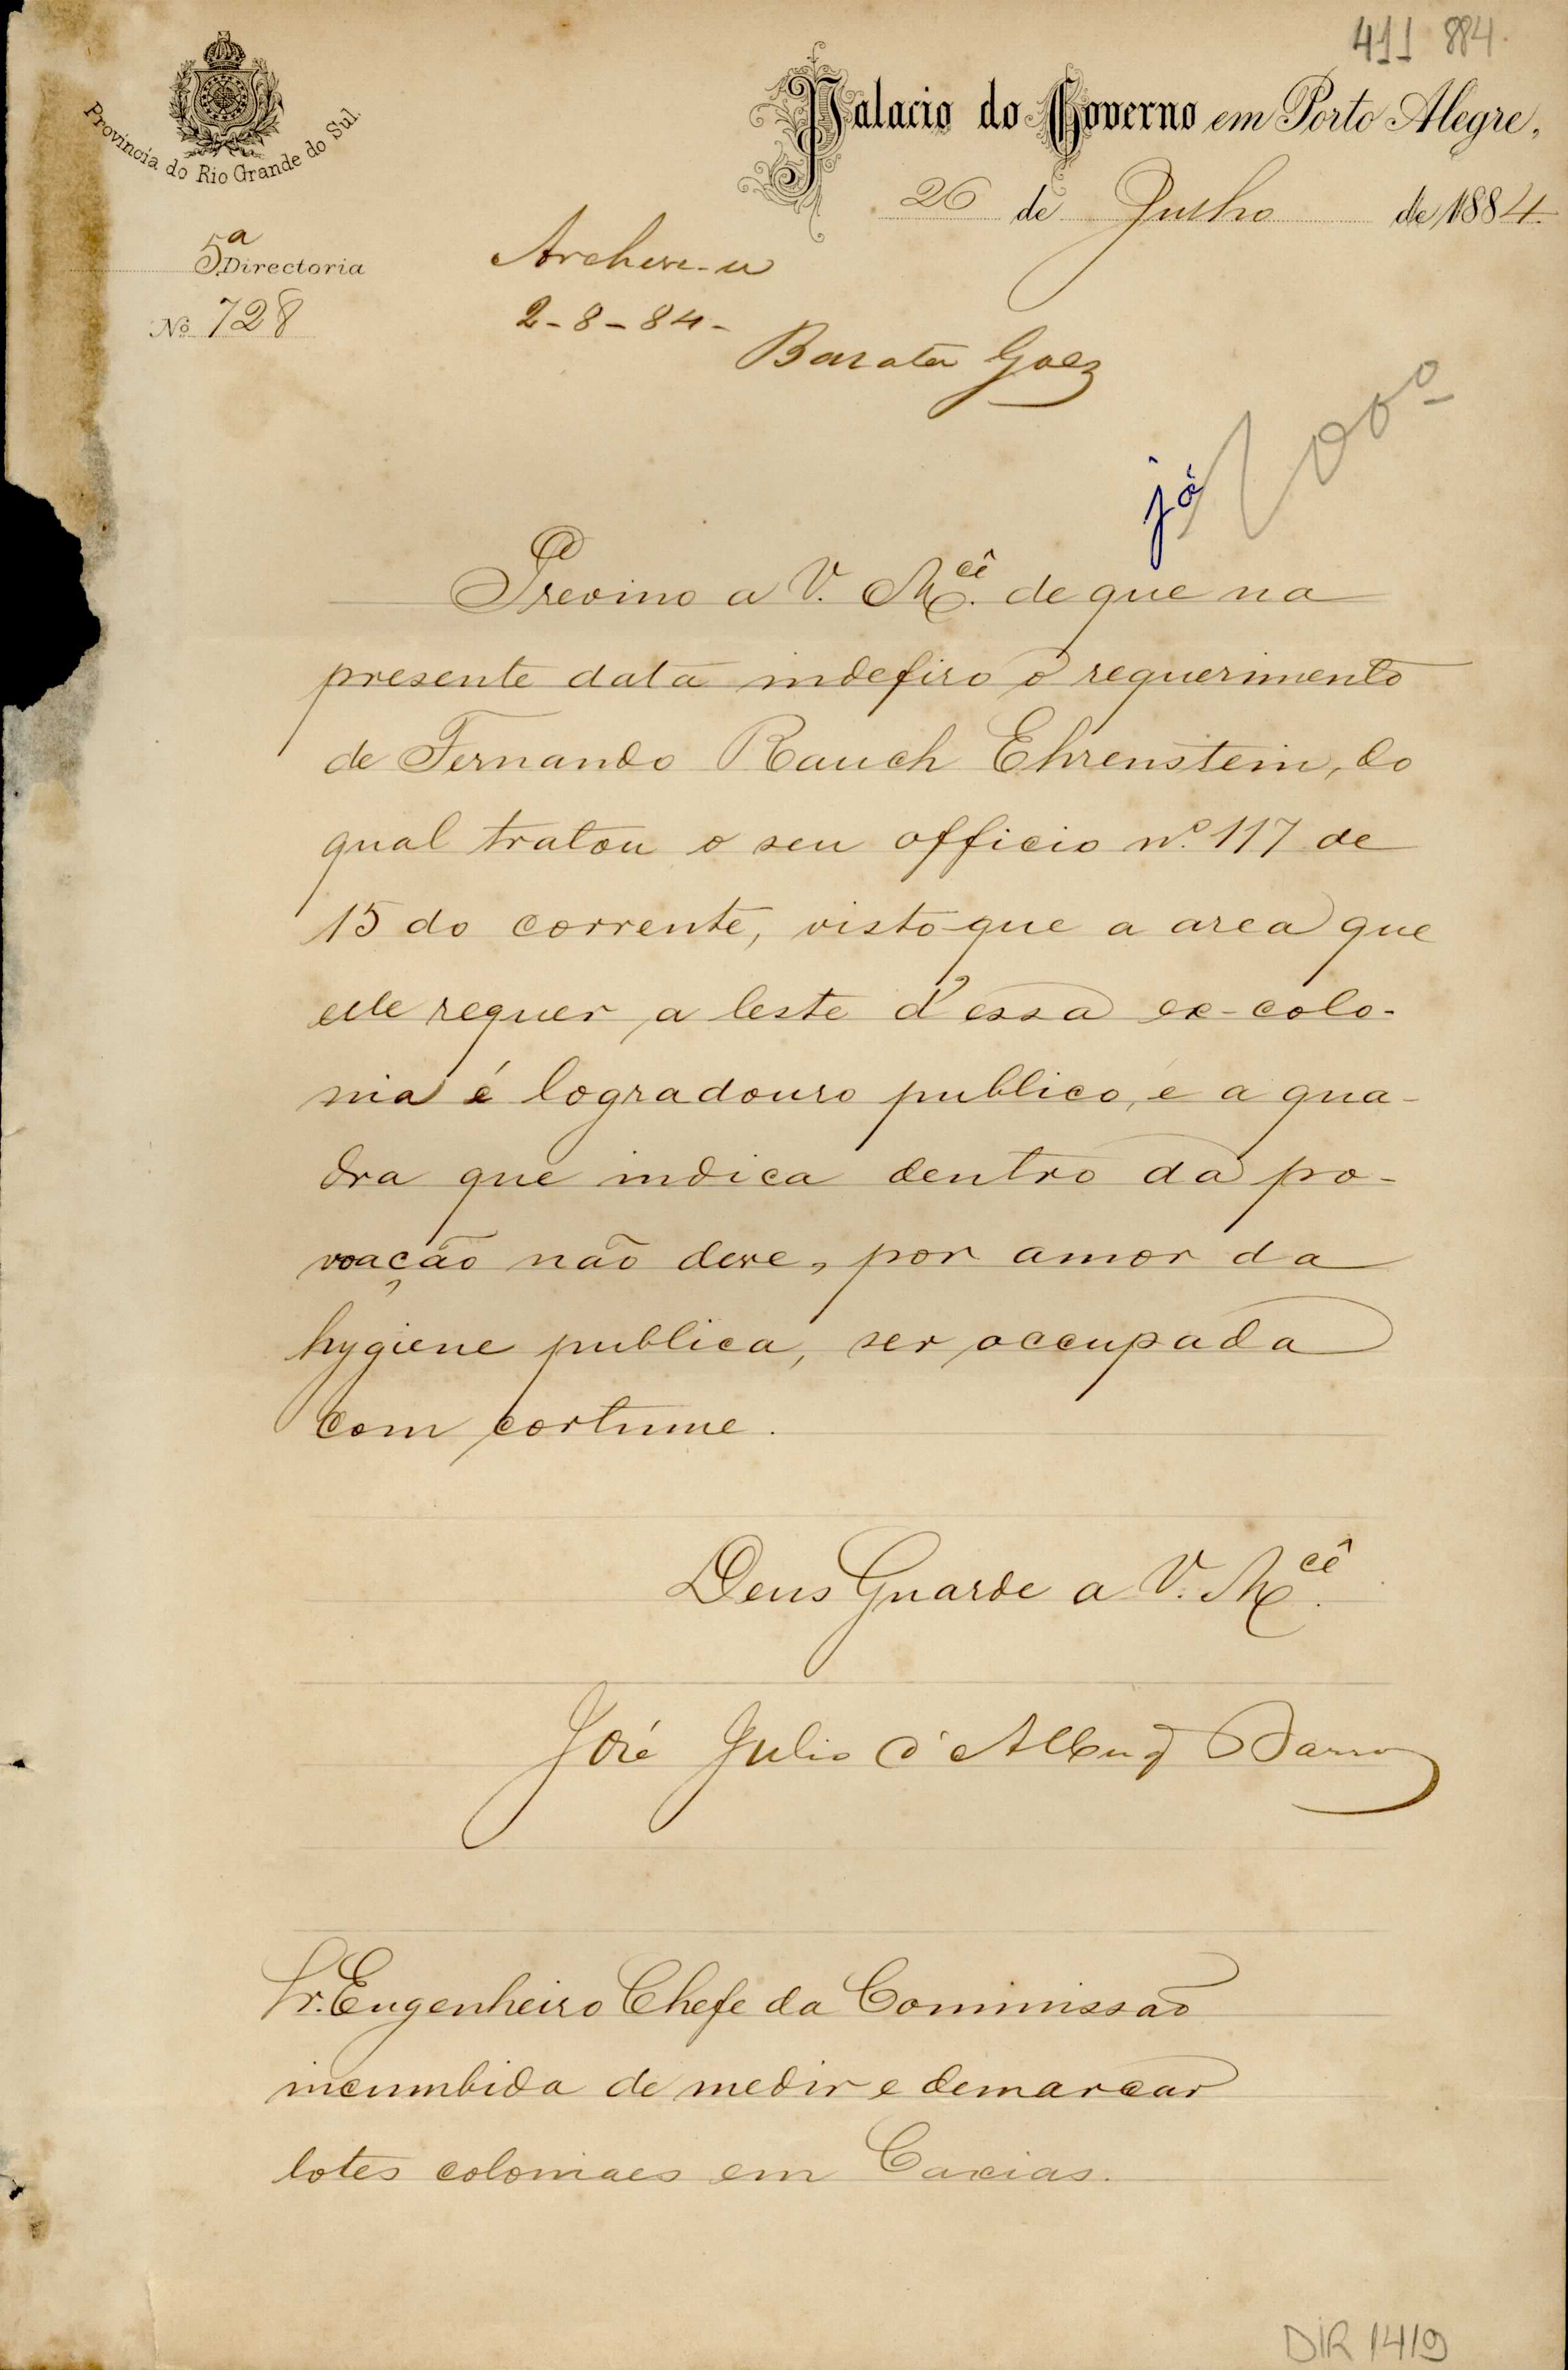 411 884.
Provincia do Rio Grande do Sul.
Palacio do Governo em Porto Alegre,
26 de Julho de 1884.
5ª Directoria
Nº 728
Archive-se
2-8-84-
Barata Goes
já
Previno a V. Mcê. de que na
presente data indefiro o requerimento
de Fernando Rauch Ehrenstein, do
qual tratou o seu officio nº. 117 de
15 do corrente, visto que a area que
elle requer, a leste d'essa ex-colo-
nia é logradouro publico, e a qua-
dra que indica dentro da po-
voação não deve, por amor da
hygiene publica, ser occupada
com cortume.
Deus Guarde a V. Mcê.
José Julio d'Albuq Barros
Sr. Engenheiro Chefe da Commissão
incumbida de medir e demarcar
lotes coloniaes em Caxias.
DIR 1419